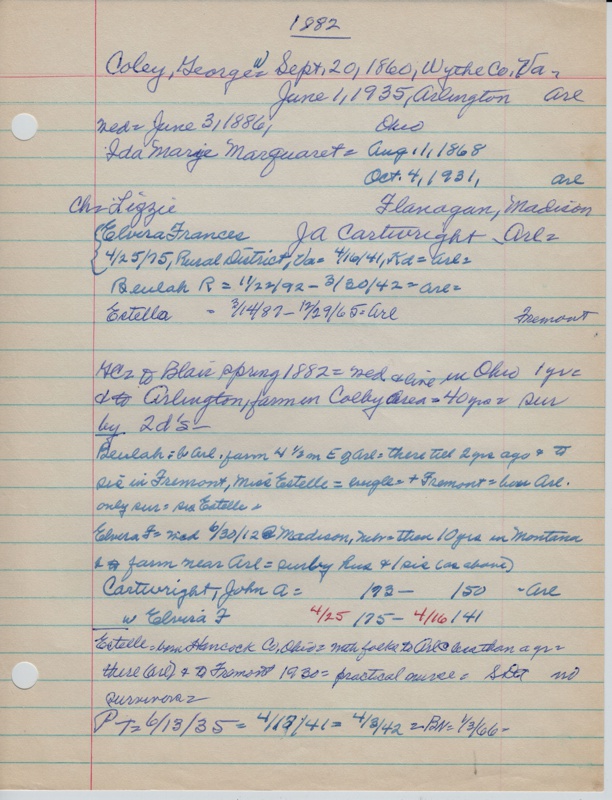 1882
Coley, George W = Sept. 20, 1860, Wythe Co. Va =
June 1, 1935, Arlington Arl
Med = June 3, 1886, Ohio
Ida Marie Marquaret = Aug. 1, 1868
Oct. 4, 1931, Arl
Ch = Lizzie Flanagan, Madison
Elvira Frances JA Cartwright Arl =
4/25/75, Rural District, Va = 4/16/41, Kd = Arl =
Beulah R = 11/22/92 - 3/30/42 = Arl =
Estella = 3/14/87 - 12/29/65 = Arl Fremont
GC = to Blair spring 1882 = med & live in Ohio 1 yr =
& to Arlington, farm in Colby area = 40 yrs = sur
by 2 d's -
Beulah = b Arl. farm 4 1/2 m E of Arl = there till 2 yrs ago & to
sis in Fremont, Miss Estelle = single = + Fremont = bur Arl.
only sur = sis Estelle +
Elvira F = med 6/30/12 @ Madison, more than 10 yrs in Montana
& to farm near Arl = sur by hus & 1 sis (as above)
Cartwright, John A = 173 - 150 - Arl
w Elvira F 4/25 175 - 4/16/41
Estelle = born Hancock Co, Ohio = with folks to Arl @ less than a yr =
there (Arl) & to Fremont 1930 = practical nurse = no
survivors =
PT = 6/13/35 = 4/18/41 = 4/3/42 = BN = 1/3/66 -